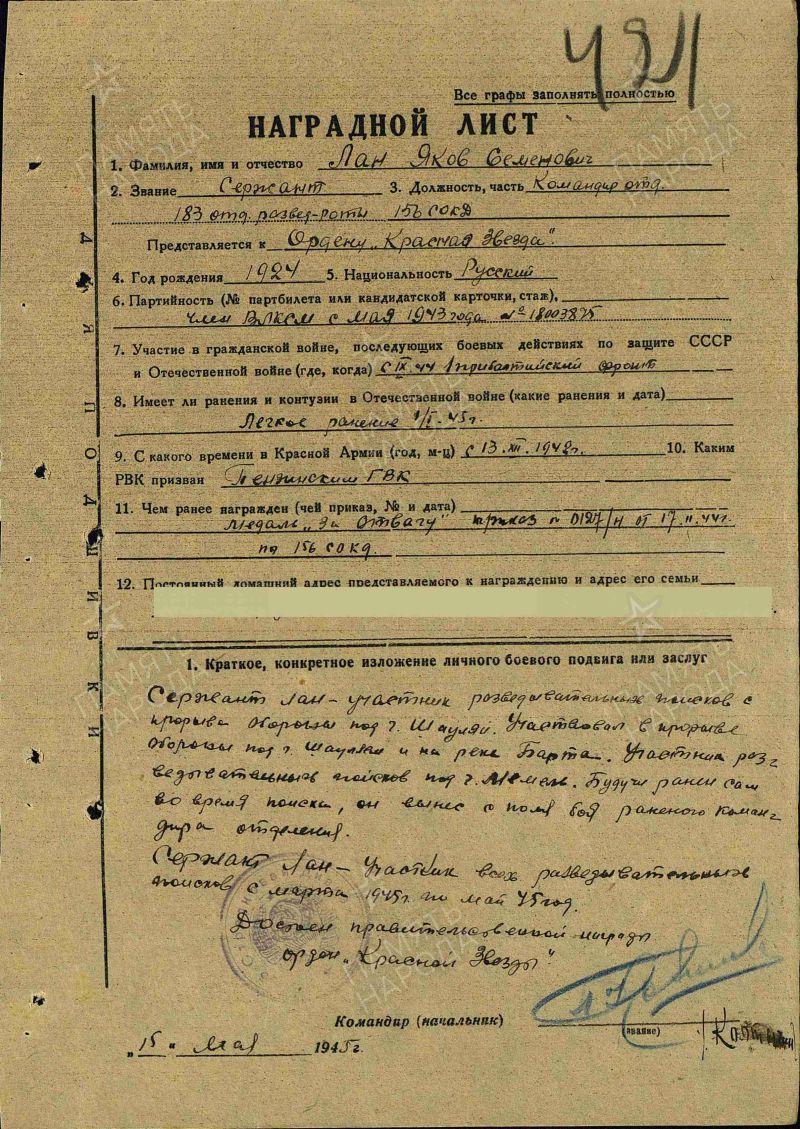 421
Все графы заполнять полностью
НАГРАДНОЙ ЛИСТ
1. Фамилия, имя и отчество Лан Яков Семенович
2. Звание Сержант 3. Должность, часть Командир отд.
183 отд. развед-роты 156 СОКД
Представляется к Ордену „Красная Звезда".
4. Год рождения 1924 5. Национальность Русский
6. Партийность (№ партбилета или кандидатской карточки, стаж),
член ВЛКСМ с мая 1943 года № 18003875
7. Участие в гражданской войне, последующих боевых действиях по защите СССР
и Отечественной войне (где, когда) с IX. 44 1 прибалтийский фронт
8. Имеет ли ранения и контузии в Отечественной войне (какие ранения и дата)
Легкое ранение 1/I-45г.
9. С какого времени в Красной Армии (год, м-ц) с 13. XII. 1942г. 10. Каким
РВК призван Пензинским ГВК
11. Чем ранее награжден (чей приказ, № и дата)
Медаль „За Отвагу" приказ № 0127/н от 17. II. 44г.
по 156 СОКД.
12. Постоянный домашний адрес представляемого к награждению и адрес его семьи
1. Краткое, конкретное изложение личного боевого подвига или заслуг
Сержант Лан – участник разведывательных поисков с
прорыва обороны под г. Шауляй. Участвовал в прорыве
обороны под г. Шауляй и на реке Барта. Участник раз-
ведывательных поисков под г. Мемель. Будучи ранен сам
во время поиска, он вынес с поля боя раненого коман-
дира отделения.
Сержант Лан – участник всех разведывательных
поисков с марта 1945г. по май 45 год.
Достоен правительственной награды
орден „Красной Звезды".
Командир (начальник)
(звание)
„15" Мая 1945г.
ДЛЯ ПОДШИВКИ
ПАМЯТЬ НАРОДА